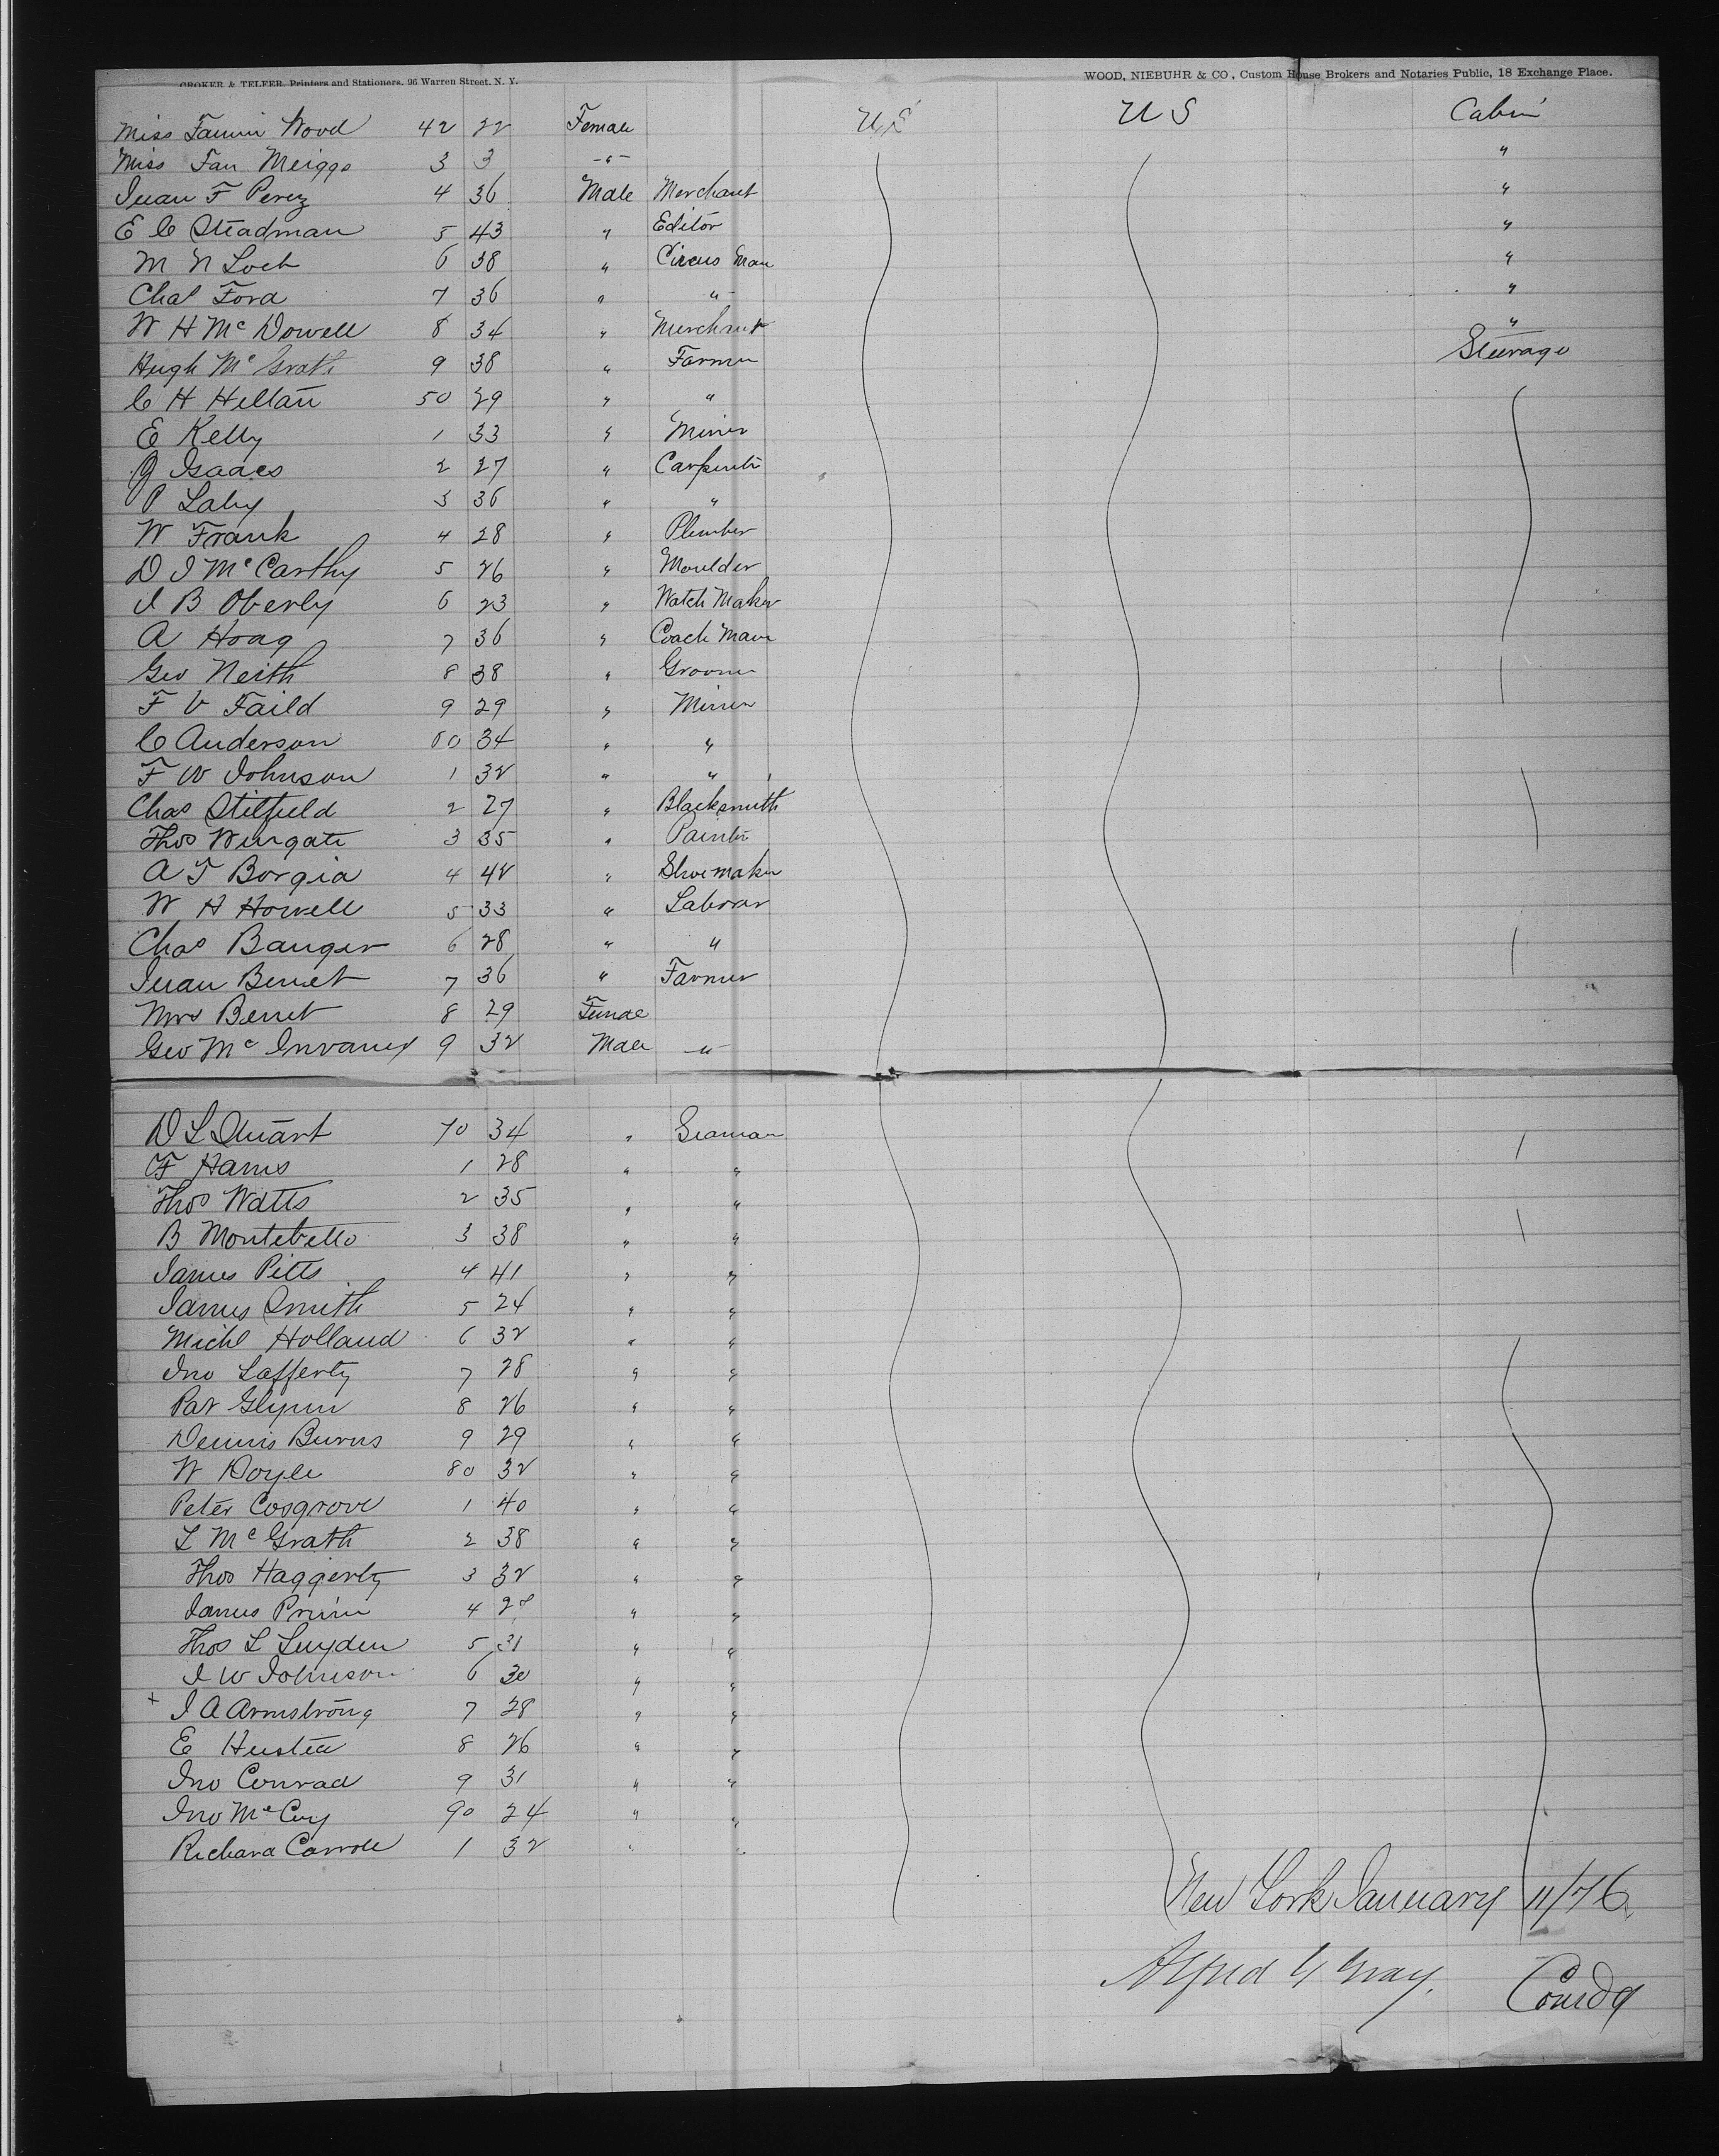 CROKER & TELFER, Printers and Stationers, 96 Warren Street, N. Y.
WOOD, NIEBUHR & CO, Custom House Brokers and Notaries Public, 18 Exchange Place.
Miss Fannie Wood 42 22 Female US US Cabin
Miss Fan Meiggs 3 3 -"- "
Juan F Perez 4 36 Male Merchant "
E C Steadman 5 43 " Editor "
M N Loch 6 38 " Circus Man "
Chas Ford 7 36 " " "
W H McDowell 8 34 " Merchant "
Hugh McGrath 9 38 " Farmer Steerage
C H Heltan 50 29 " "
E Kelly 1 33 " Miner
J Isaacs 2 27 " Carpenter
P Lahy 3 36 " "
W Frank 4 28 " Plumber
D J McCarthy 5 26 " Moulder
J B Oberly 6 23 " Watch Maker
A Hoag 7 36 " Coach Man
Geo Neith 8 38 " Groom
F V Faild 9 29 " Miner
C Anderson 60 34 " "
F W Johnson 1 32 " "
Chas Stilfield 2 27 " Blacksmith
Thos Wingate 3 35 " Painter
A T Borgia 4 42 " Shoemaker
W H Howell 5 33 " Laborer
Chas Banger 6 28 " "
Juan Benet 7 36 " Farmer
Mrs Benet 8 29 Female
Geo Mc 9 32 Male -"-
D L Stuart 70 34 " Seaman
F Harris 1 28 " "
Thos Watts 2 35 " "
B Montebello 3 38 " "
James Pitts 4 41 " "
James Smith 5 24 " "
Michl Holland 6 32 " "
Jno Lafferty 7 28 " "
Pat Glynn 8 26 " "
Dennis Burns 9 29 " "
W Doyle 80 32 " "
Peter Cosgrove 1 40 " "
L McGrath 2 38 " "
Thos Haggerty 3 32 " "
James 4 " "
Thos L Luyden 5 31 " "
J W Johnson 6 30 " "
x J A Armstrong 7 28 " "
E Hustea 8 26 " "
Jno Conrad 9 31 " "
Jno McCoy 90 24 " "
Richard Carroll 1 32 " "
New York January 11/76
Alfred G Gray.
Comdg